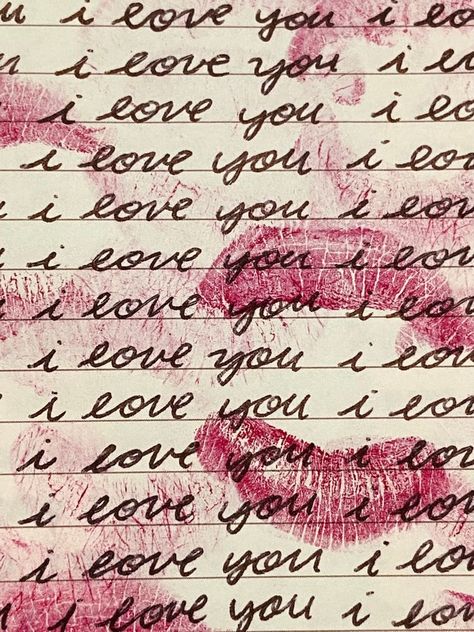 u i love you i lo
u i love you i l
i love you i lo
i love you i lo
i love you i lov
i love you i lov
i love you i lov
i love you i lov
i love you i lov
i love you i lov
i love you i lov
i love you i lo
i love you i lo